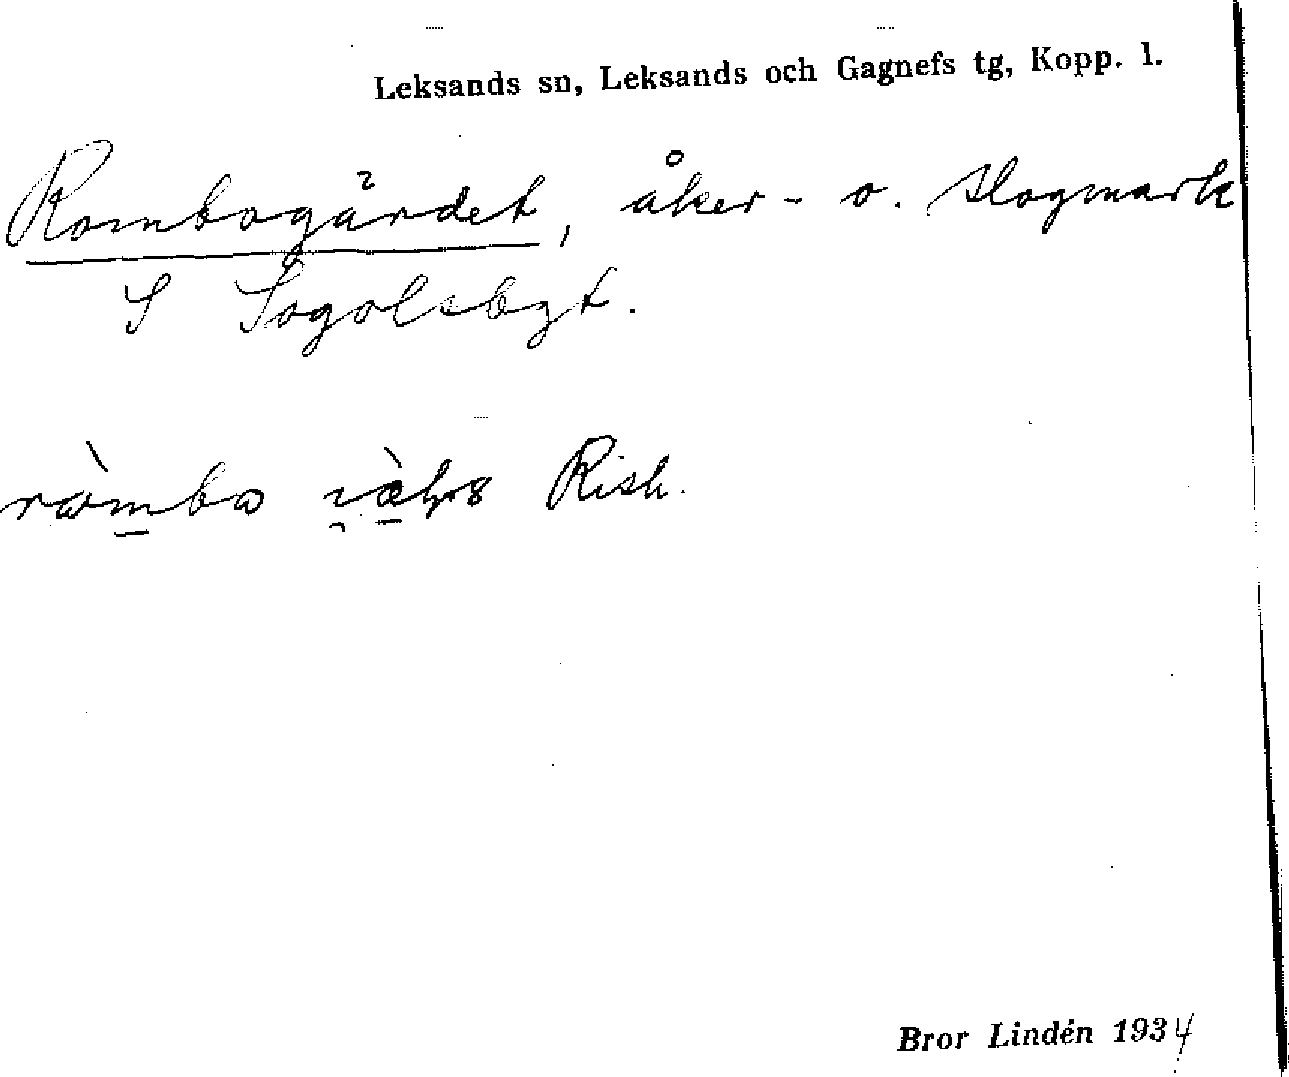 Leksands sn, Leksands och Gagnefs tg, Kopp. l.
Rombogärdet, åker- o. slogmark
S Sågolsbyt.
Rish.
Bror Lindén 1934